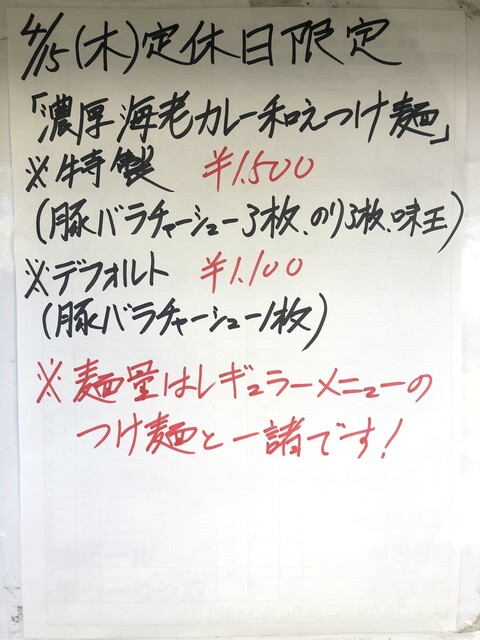 4/15(木)定休日限定
「濃厚海老カレー和えつけ麺」
※特製 ¥1.500
(豚バラチャーシュー3枚、のり3枚、味玉)
※デフォルト ¥1.100
(豚バラチャーシュー1枚)
※麺量はレギュラーメニューの
つけ麺と一諸です!